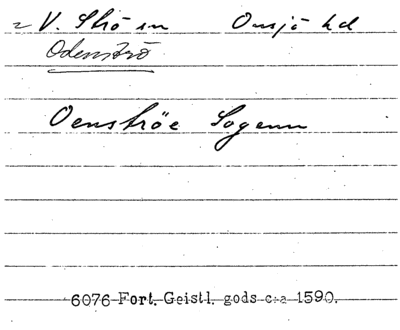 V. Strö sn Onsjö hd
Odenströ
Oenströe Sogenn
6076 Fort. Geistl. gods c:a 1590.